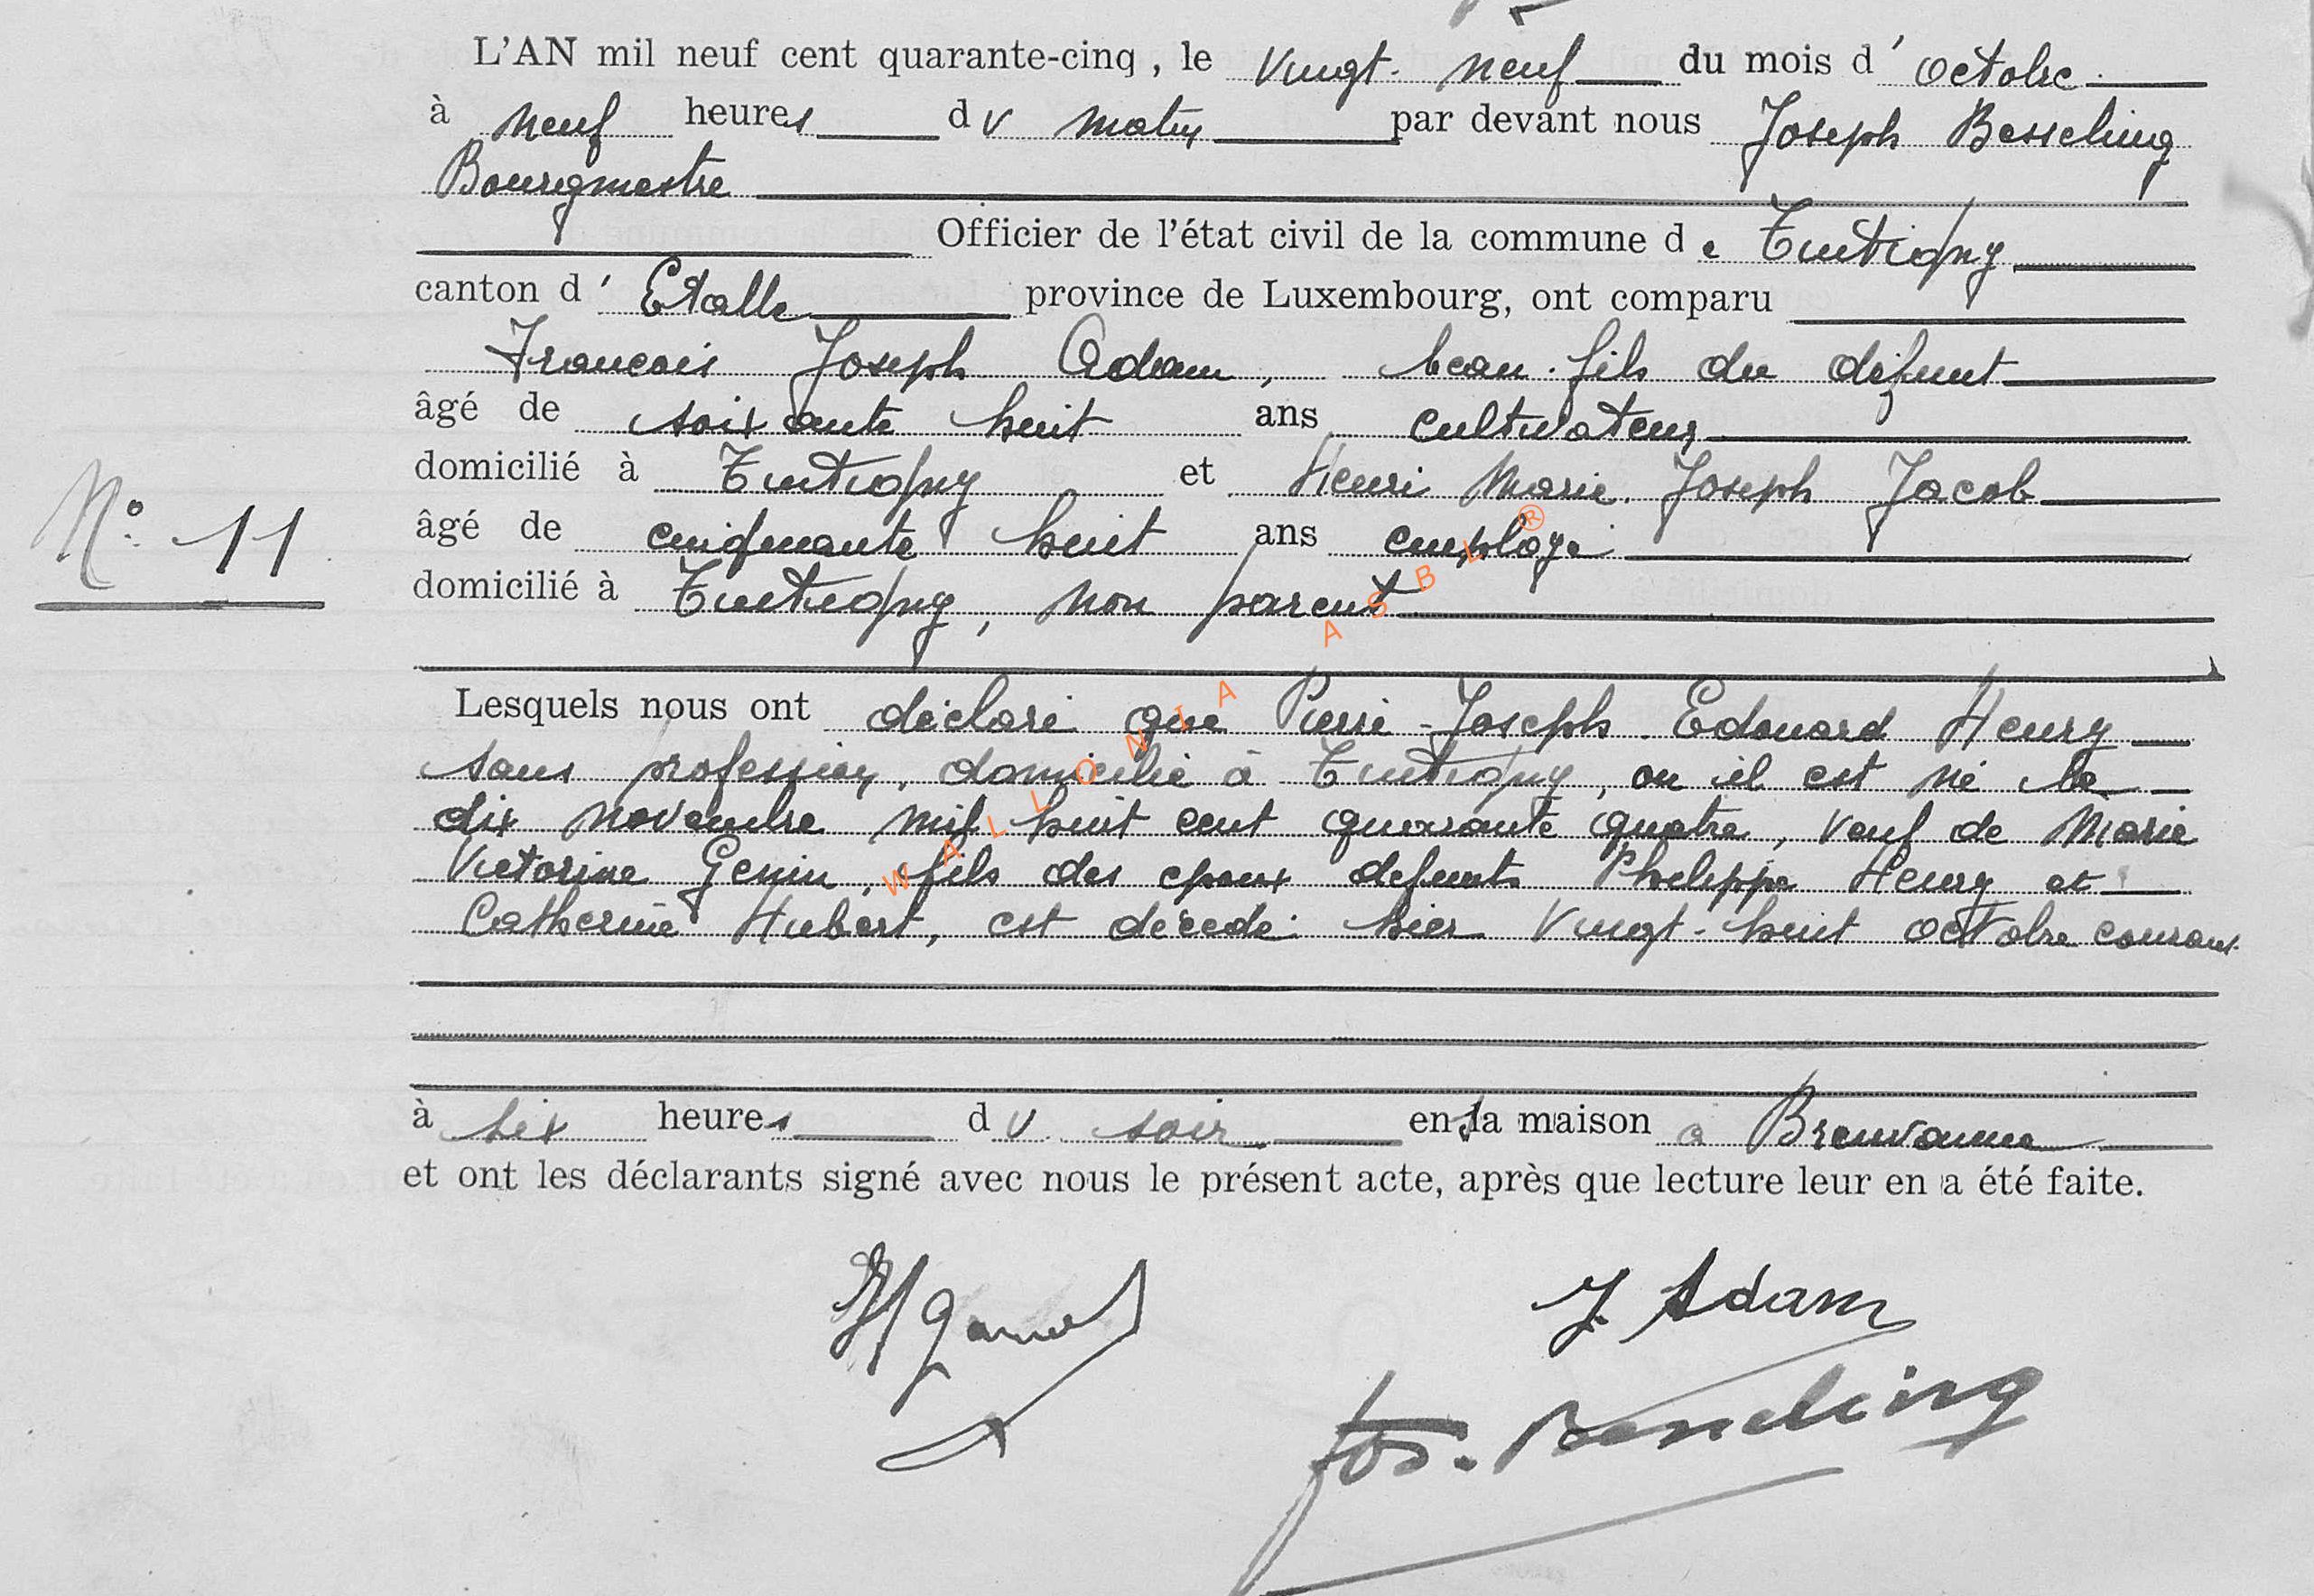 L'AN mil neuf cent quarante-cinq, le vingt-neuf du mois d'octobre
à neuf heures du matin par devant nous Joseph Besseling
Bourgmestre
Officier de l'état civil de la commune de Tintigny
canton d'Etalle province de Luxembourg, ont comparu
Francois Joseph Adam, beau-fils du défunt
âgé de soixante huit ans cultivateur
domicilié à Tintigny et Henri Marie Joseph Jacob
N° 11
âgé de cinquante huit ans employé
domicilié à Tintigny, non parent
Lesquels nous ont déclaré que Pierre-Joseph Edouard Henry
sans profession, domicilié à Tintigny, ou il est né le
dix novembre mil huit cent quarante quatre, veuf de Marie
Victorine Genin, fils des epoux defunts Philippe Henry et
Catherine Hubert, est décédé hier vingt-huit octobre courant
à six heures du soir en sa maison à Breuvanne
et ont les déclarants signé avec nous le présent acte, après que lecture leur en a été faite.
J. Adam
Jos. Besseling
WALLONIA ASBL ®